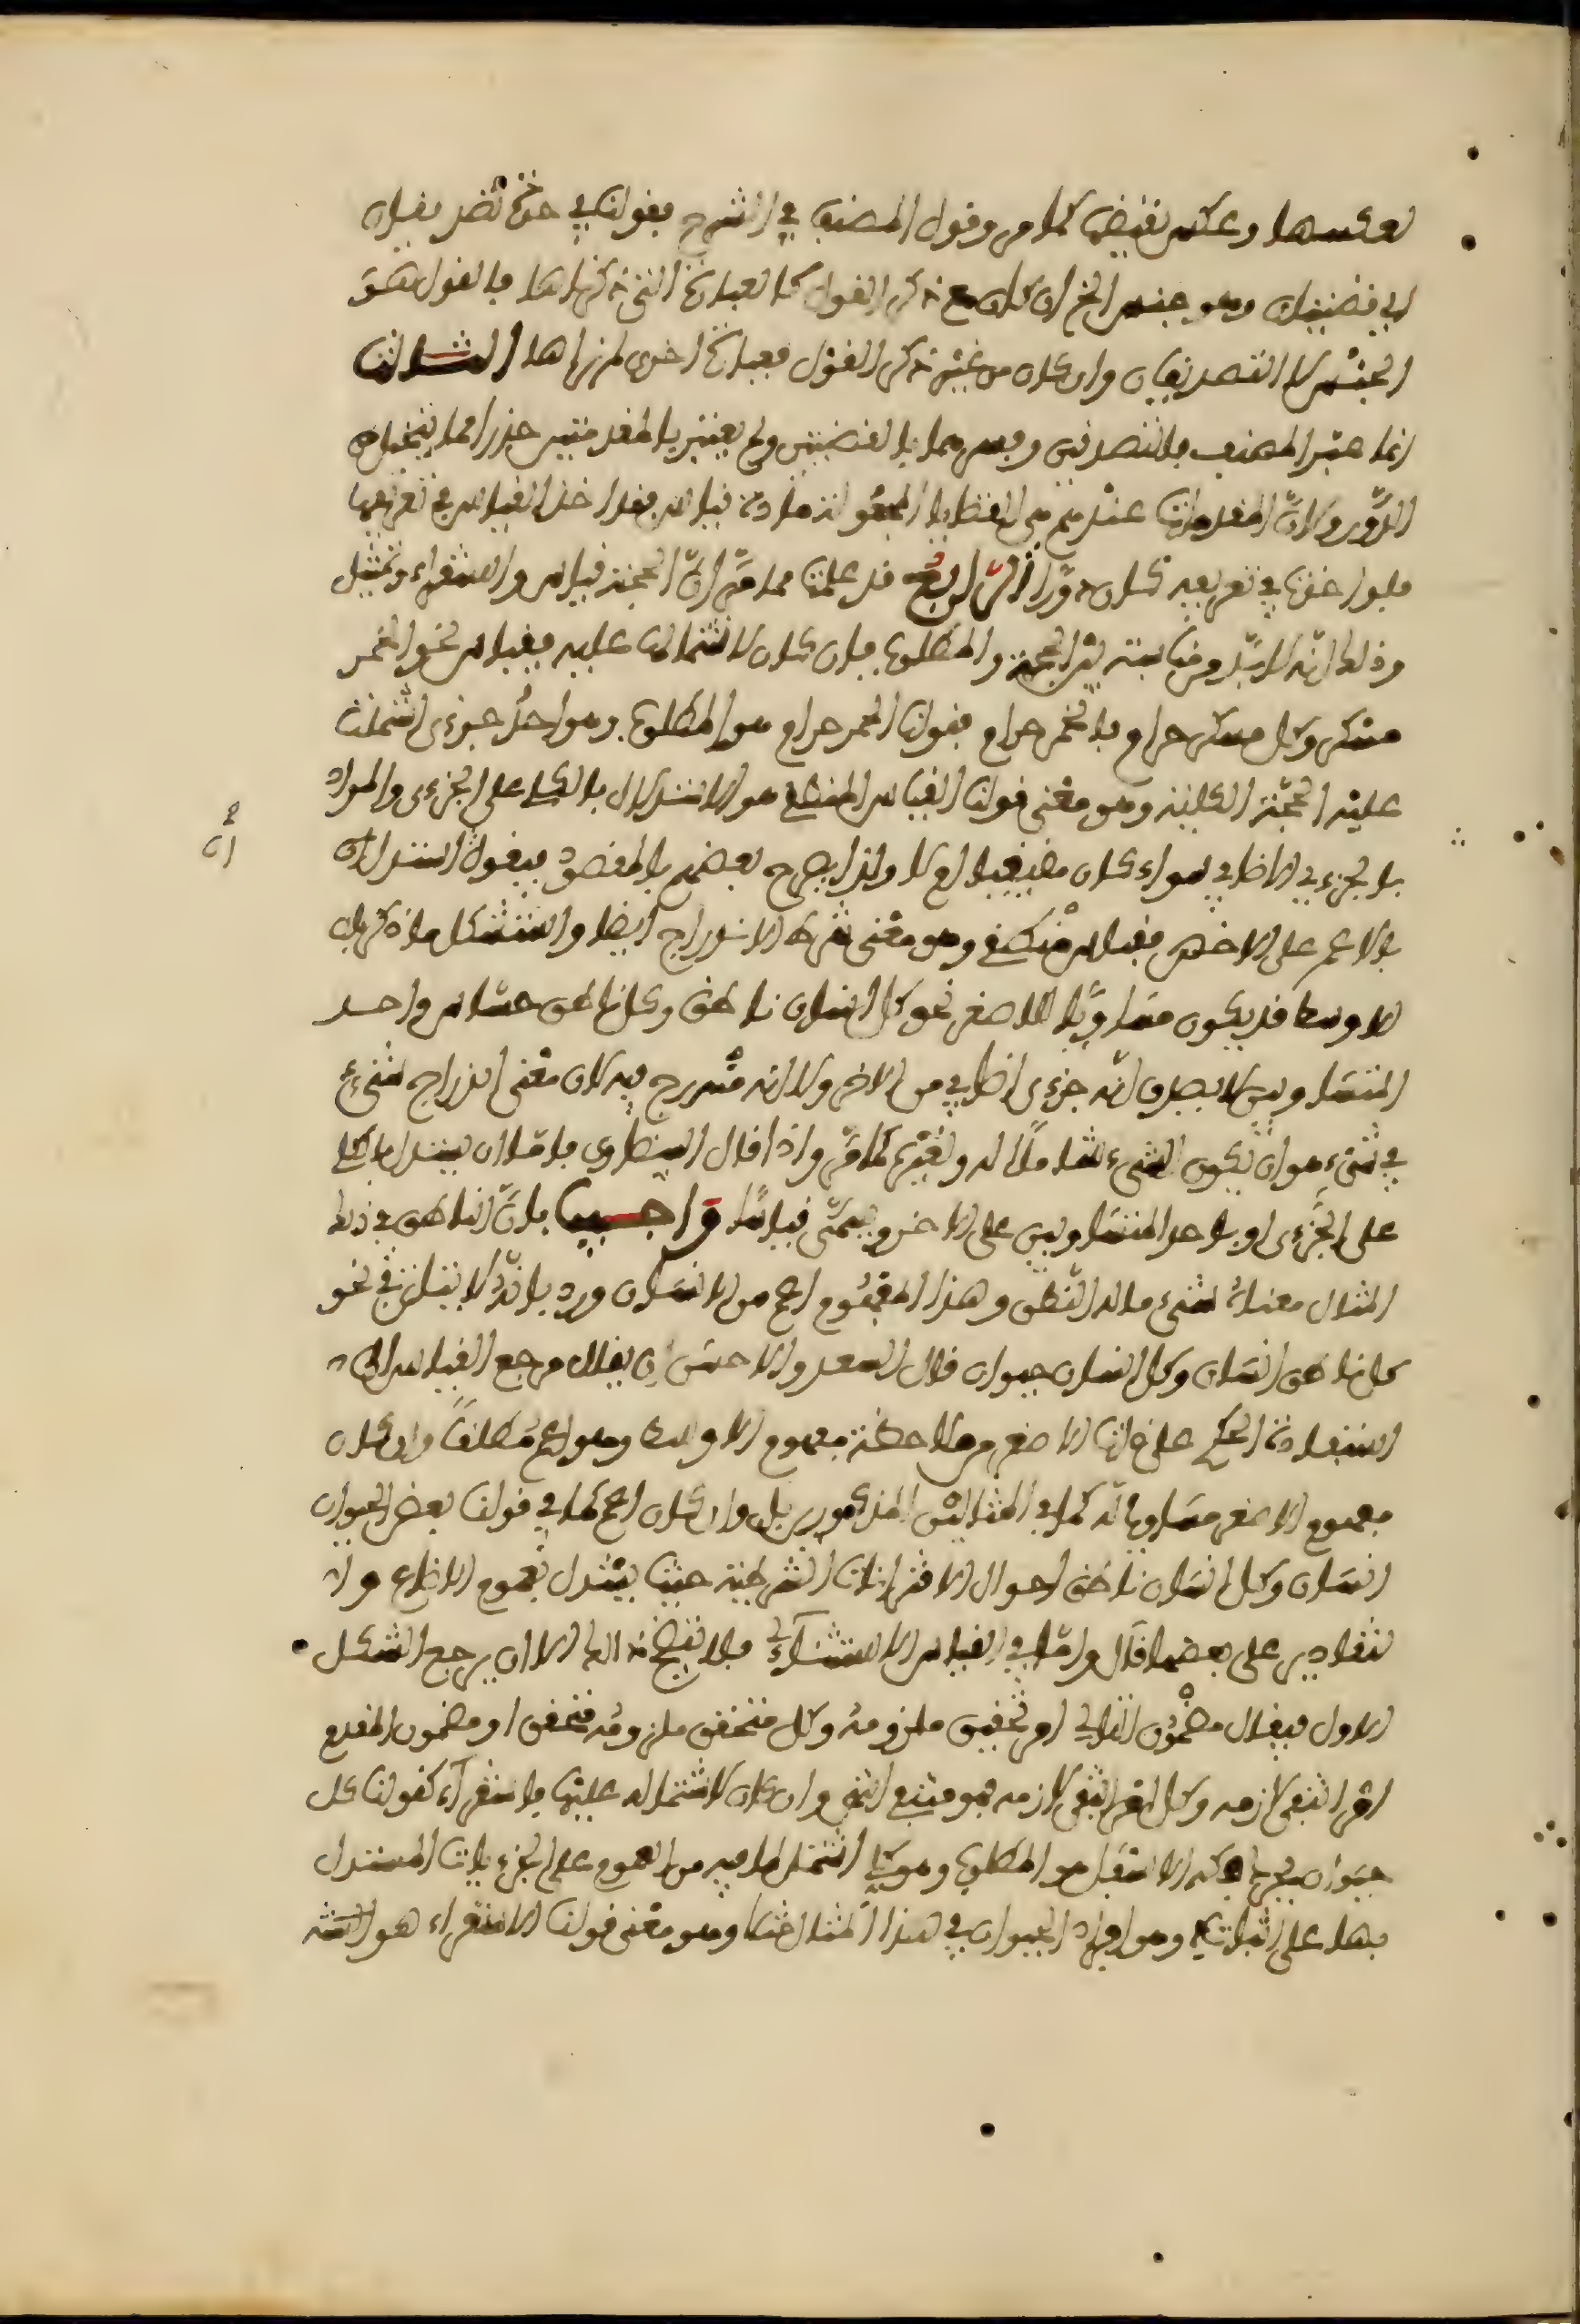 بعكسها وعكس نقيضها كما مر وقول المصنف في الشرح فقولنا في حده تصديقان
اي قضيتان وهو جنس الخ ان كان مع ذكر القول كالعبارة التي ذكرناها فالقول هو
الجنس لا التصديقان وان كان من غير ذكر القول فعبارة اخرى لم نرها الثالث
انما عبر المصنف بالتصديقين وفسرهما بالقضيتين ولم يعبر بالمقدمتين حذرا مما يتخيل من
الدور ولان المقدمات عندهم هي القضايا المجعولة مادة قياس فقد اخذ القياس في تعريفها
فلو اخذت في تعريفه كان دورا الرابع قد علمت مما مر ان الحجة قياس واستقراء وتمثيل
وذلك انه لا بد من مناسبة بين الحجة والمطلوب فان كان لاشتمالها عليه فقياس نحو الخمر
مسكر وكل مسكر حرام فالخمر حرام فقولنا الخمر حرام هو المطلوب وهو احد جزءي اشتملت
عليه الحجة الكلية وهو معنى قولنا القياس المنطقي هو الاستدلال بالكلي على الجزءي والمراد
بالجزءي الاضافي سواء كان حقيقيا ام لا ولذا يصرح بعضهم بالمقصود فيقول استدلال
بالاعم على الاخص فقياس منطقي وهو معنى شرط الاندراج ايضا واستشكل ما ذكر بان
الاوسط قد يكون مساويا للاصغر نحو كل انسان ناطق وكل ناطق حساس واحد
المتساويين لا يصدق انه جزءي اضافي من الاخر ولا انه مندرج فيه لان معنى اندراج شيء
في شيء هو ان يكون الشيء شاملا له ولغيره كما مر واذا قال البيضاوي فاما ان يستدل بالكلي
على الجزءي او باحد المتساويين على الاخر ويسمى قياسا واجيب بان الناطق في ذلك
المثال معناه شيء ما له النطق وهذا المفهوم اعم من الانسان ورد بانه لا يتاتى في نحو
كل ناطق انسان وكل انسان حيوان قال السعد والاحسن ان يقال مرجع القياس الى
استفادة الحكم على ذات الاصغر من ملاحظة مفهوم الاوسط وهو اعم مطلقا وان كان
مفهوم الاصغر مساويا له كما في المثالين المذكورين بل وان كان اعم كما في قولنا بعض الحيوان
انسان وكل انسان ناطق احوال الاقترانات الشرطية حيث يستدل بعموم الاوضاع وا
لتقادير على بعضها قال واما في القياس الاستثنائي فلا يتضح ذلك الا ان يرجع الشكل
الاول فيقال مضمون التالي امر تحقيق ملزومه وكل متحقق ملزومه متحقق او مضمون المقدم
امر انتفى لازمه وكل امر انتفى لازمه فهو منتف انتهى وان كان لاشتماله عليها فاستقراء كقولنا كل
حيوان يحرك فكه الاسفل هو المطلوب وهو كلي اشتمل لما فيه من العموم على الجزءيات المستدل
بها على اثباته وهو افراد الحيوان في هذا المثال مثلا وهو معنى قولنا الاستقراء هو
ان